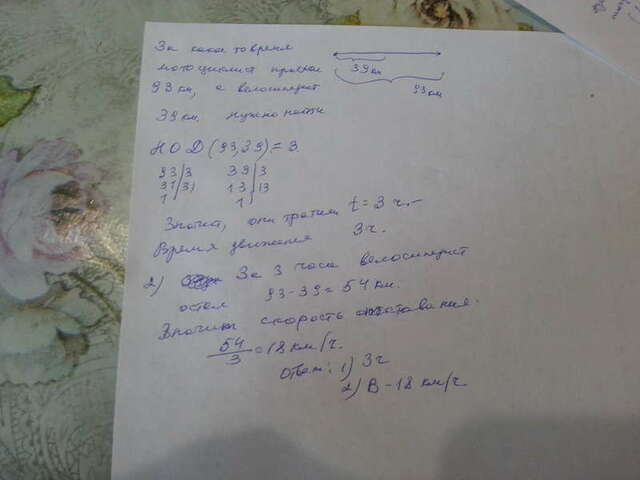 За какое то время
мотоциклист проехал
39 км
93 км, а велосипедист
93 км
39 км. нужно найти
НОД (93,39) = 3.
93|3 39|3
31|31 13|13
1| 1|
Значит, они тратили t = 3 ч.
Время движения 3 ч.
2) За 3 часа велосипедист
отстал 93-39=54 км.
Значит скорость отставания:
54/3 = 18 км/ч.
Ответ: 1) 3 ч
2) В - 18 км/ч